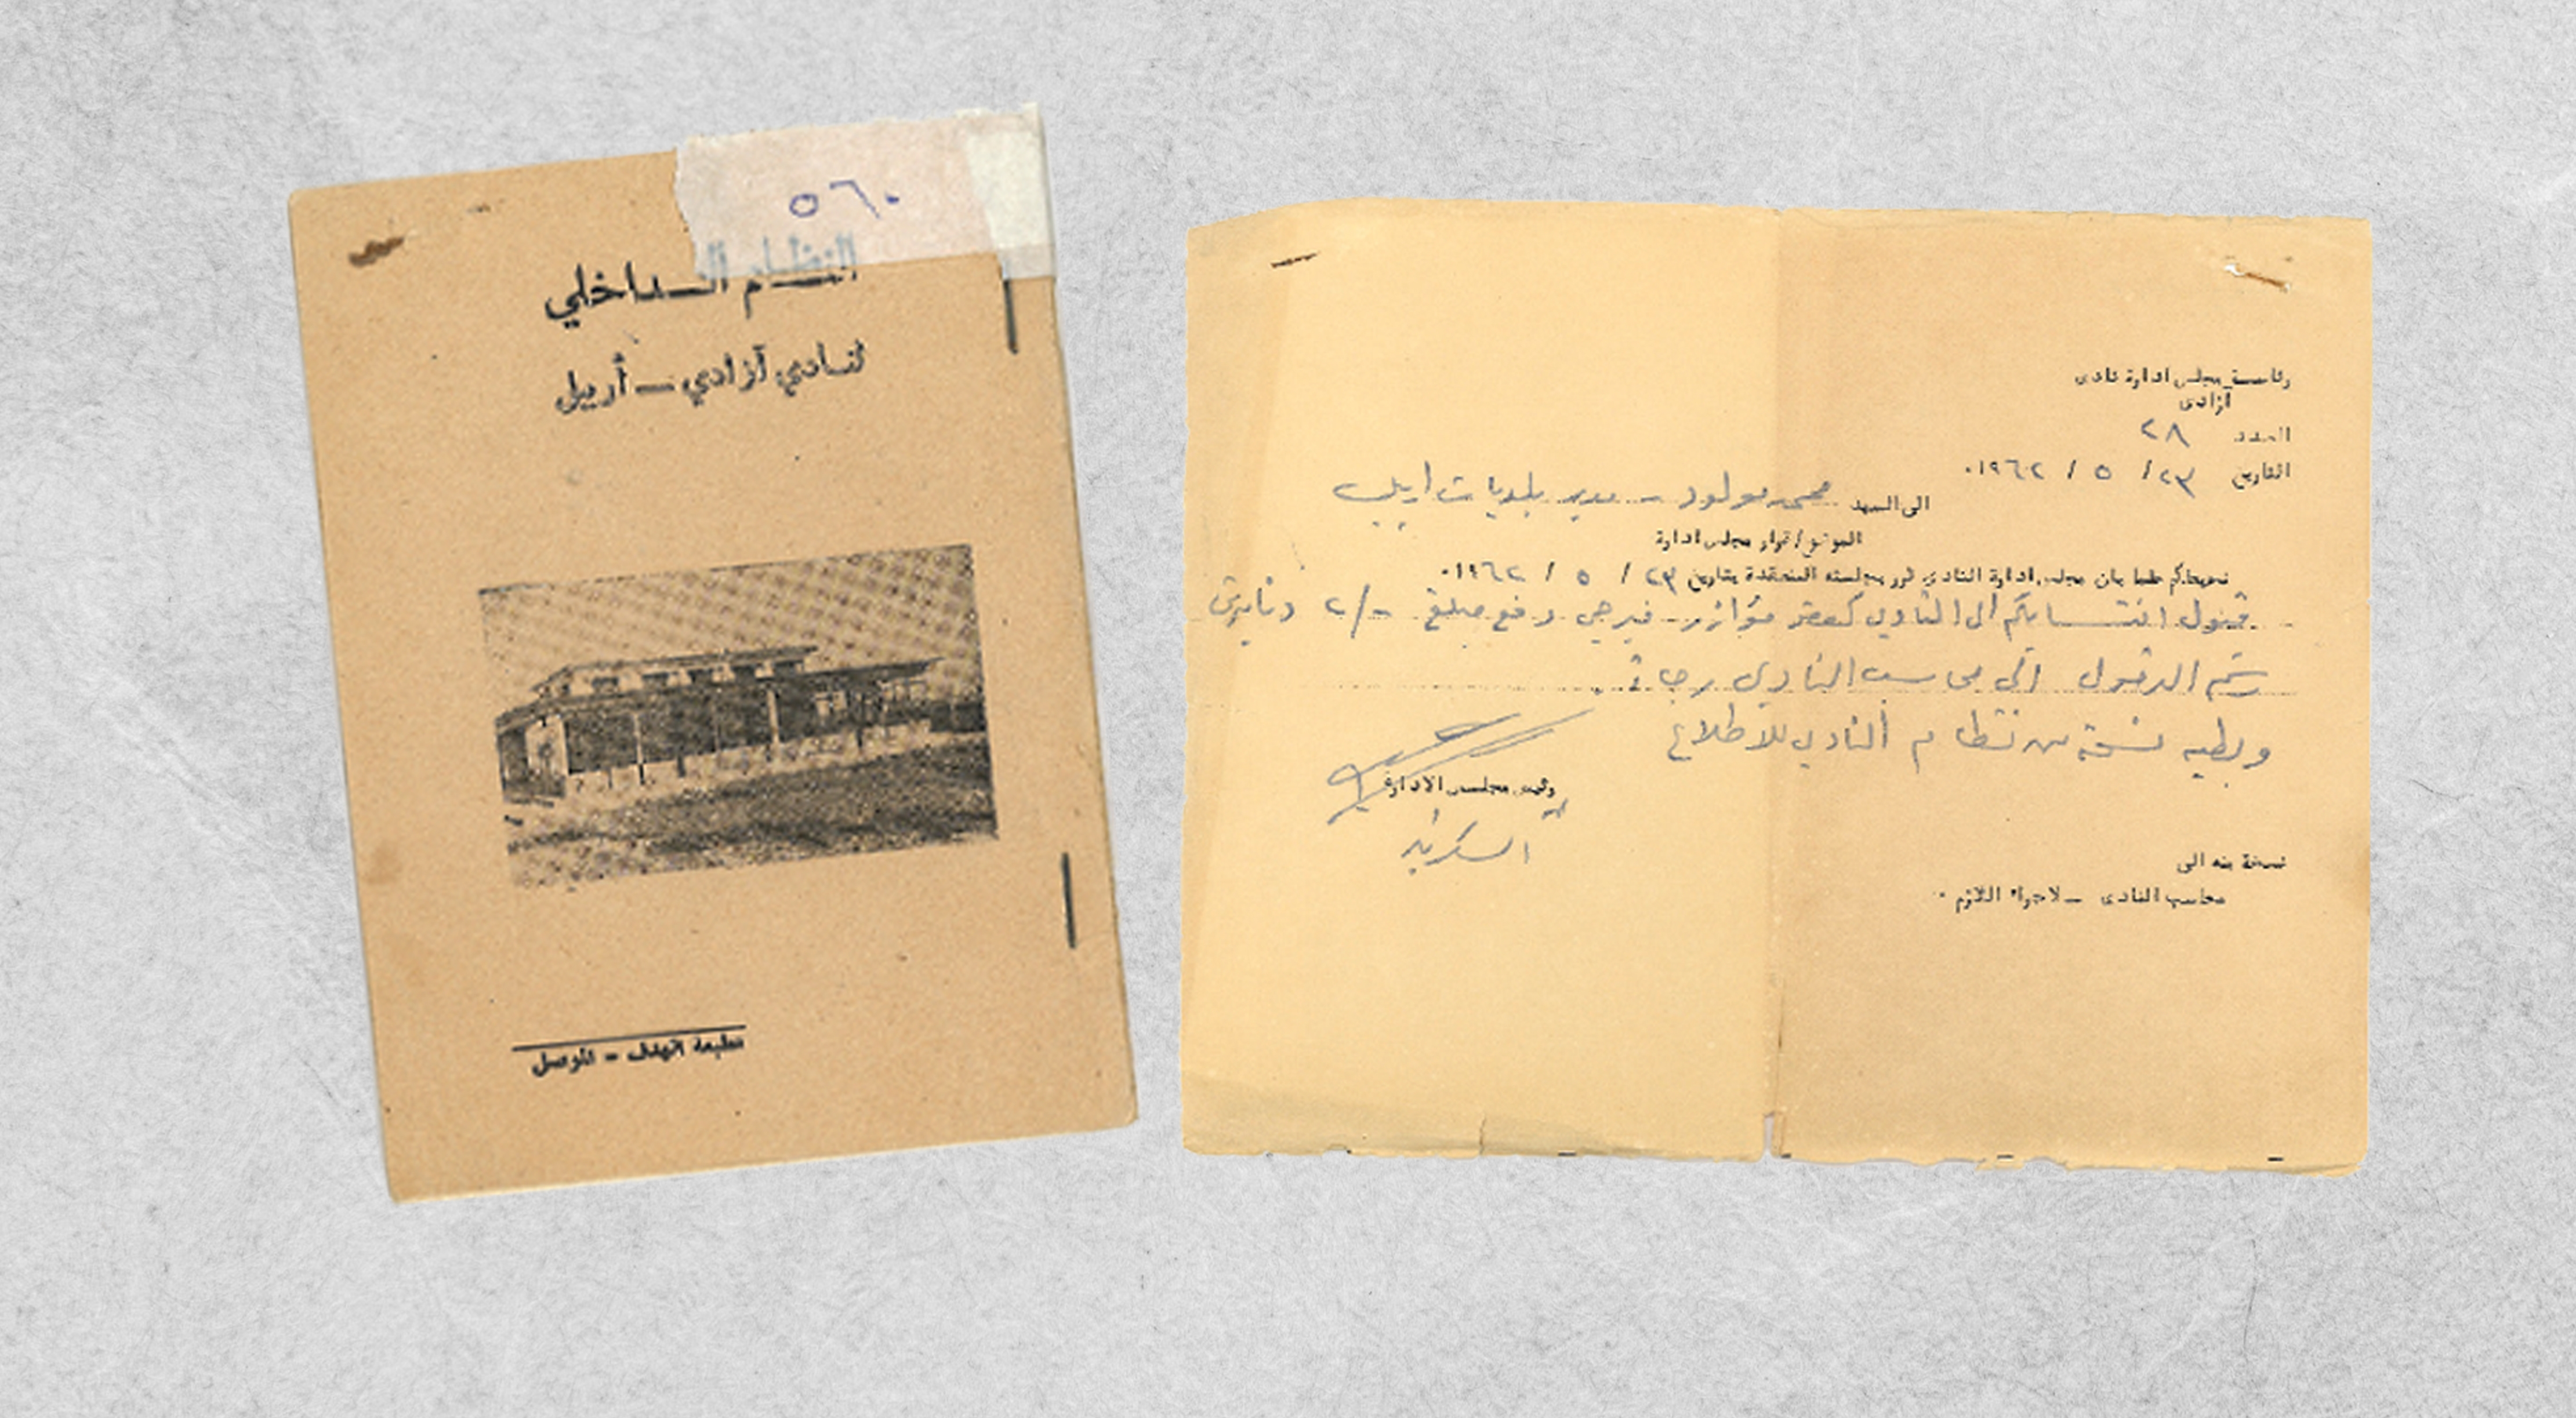 ٥٦٠
النظام الداخلي
لنادي آزادي – أربيل
مطبعة الهدف – الموصل
رئاسة مجلس ادارة نادى
ازادى
العدد ٢٨
التاريخ ٢٣ / ٥ / ١٩٦٢٠
الى السيد محمد مولود – مدير بلديات اربيل
الموضوع / قرار مجلس ادارة
نحيطكم علما بان مجلس ادارة النادى قرر بجلسته المنعقدة بتاريخ ٢٣ / ٥ / ١٩٦٢٠
قبول انتسابكم الى النادي كعضو مؤازر فيرجى دفع مبلغ -/٢ دينارين
رسم الدخول الى محاسب النادي رجاءً
وبطيه نسخة من نظام النادي للاطلاع
رئيس مجلس الادارة
السكرتير
نسخة منه الى
محاسب النادى – لاجراء اللازم ٠